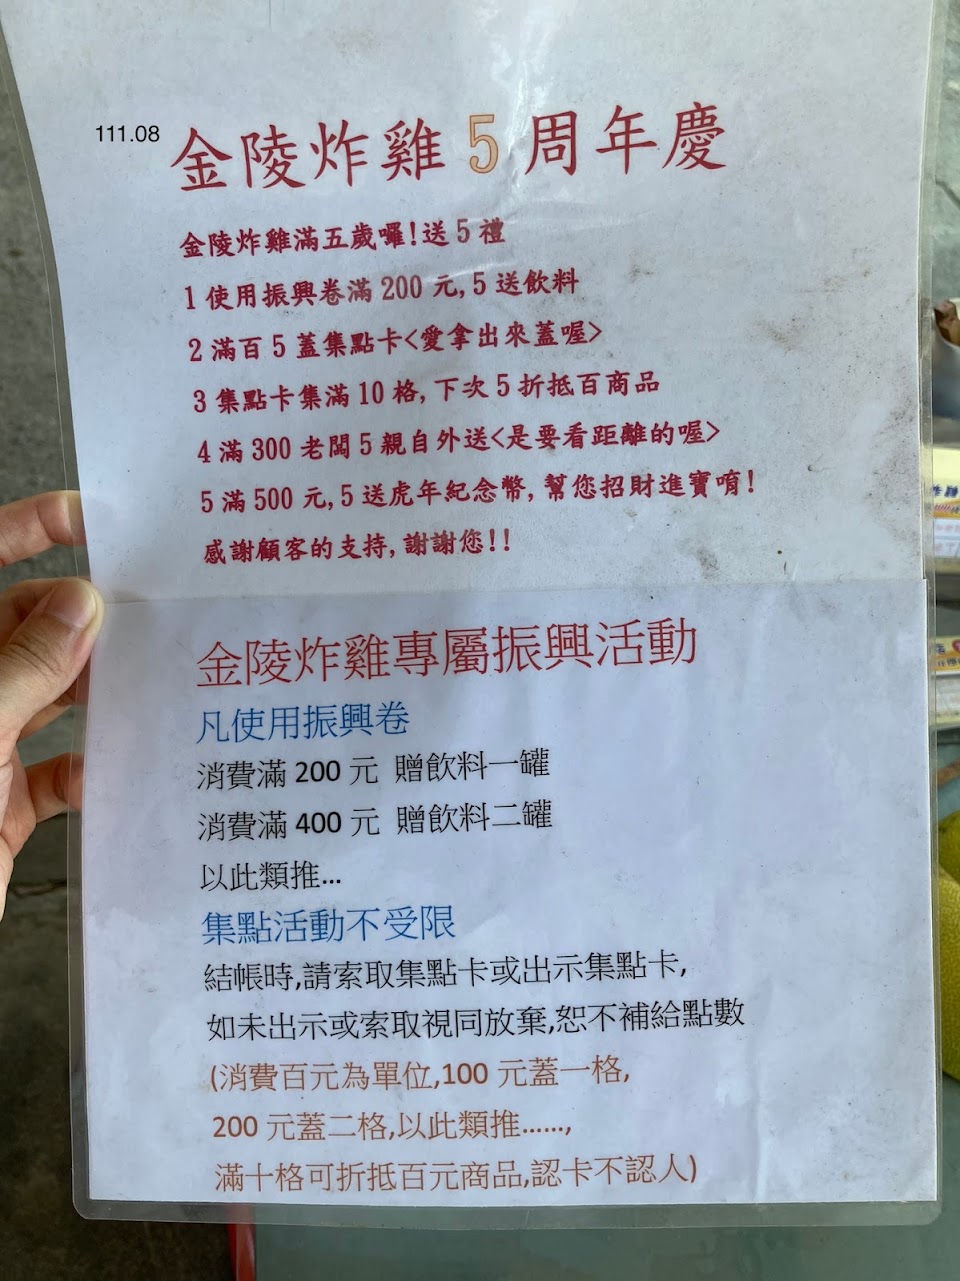 111.08 金陵炸雞5周年慶
金陵炸雞滿五歲囉!送5禮
1使用振興卷滿200元,5送飲料
2滿百5蓋集點卡<愛拿出來蓋喔>
3集點卡集滿10格,下次5折抵百商品
4滿300老闆5親自外送<是要看距離的喔>
5滿500元,5送虎年紀念幣,幫您招財進寶唷!
感謝顧客的支持,謝謝您!!
金陵炸雞專屬振興活動
凡使用振興卷
消費滿200元 贈飲料一罐
消費滿400元 贈飲料二罐
以此類推...
集點活動不受限
結帳時,請索取集點卡或出示集點卡,
如未出示或索取視同放棄,恕不補給點數
(消費百元為單位,100元蓋一格,
200元蓋二格,以此類推......,
滿十格可折抵百元商品,認卡不認人)